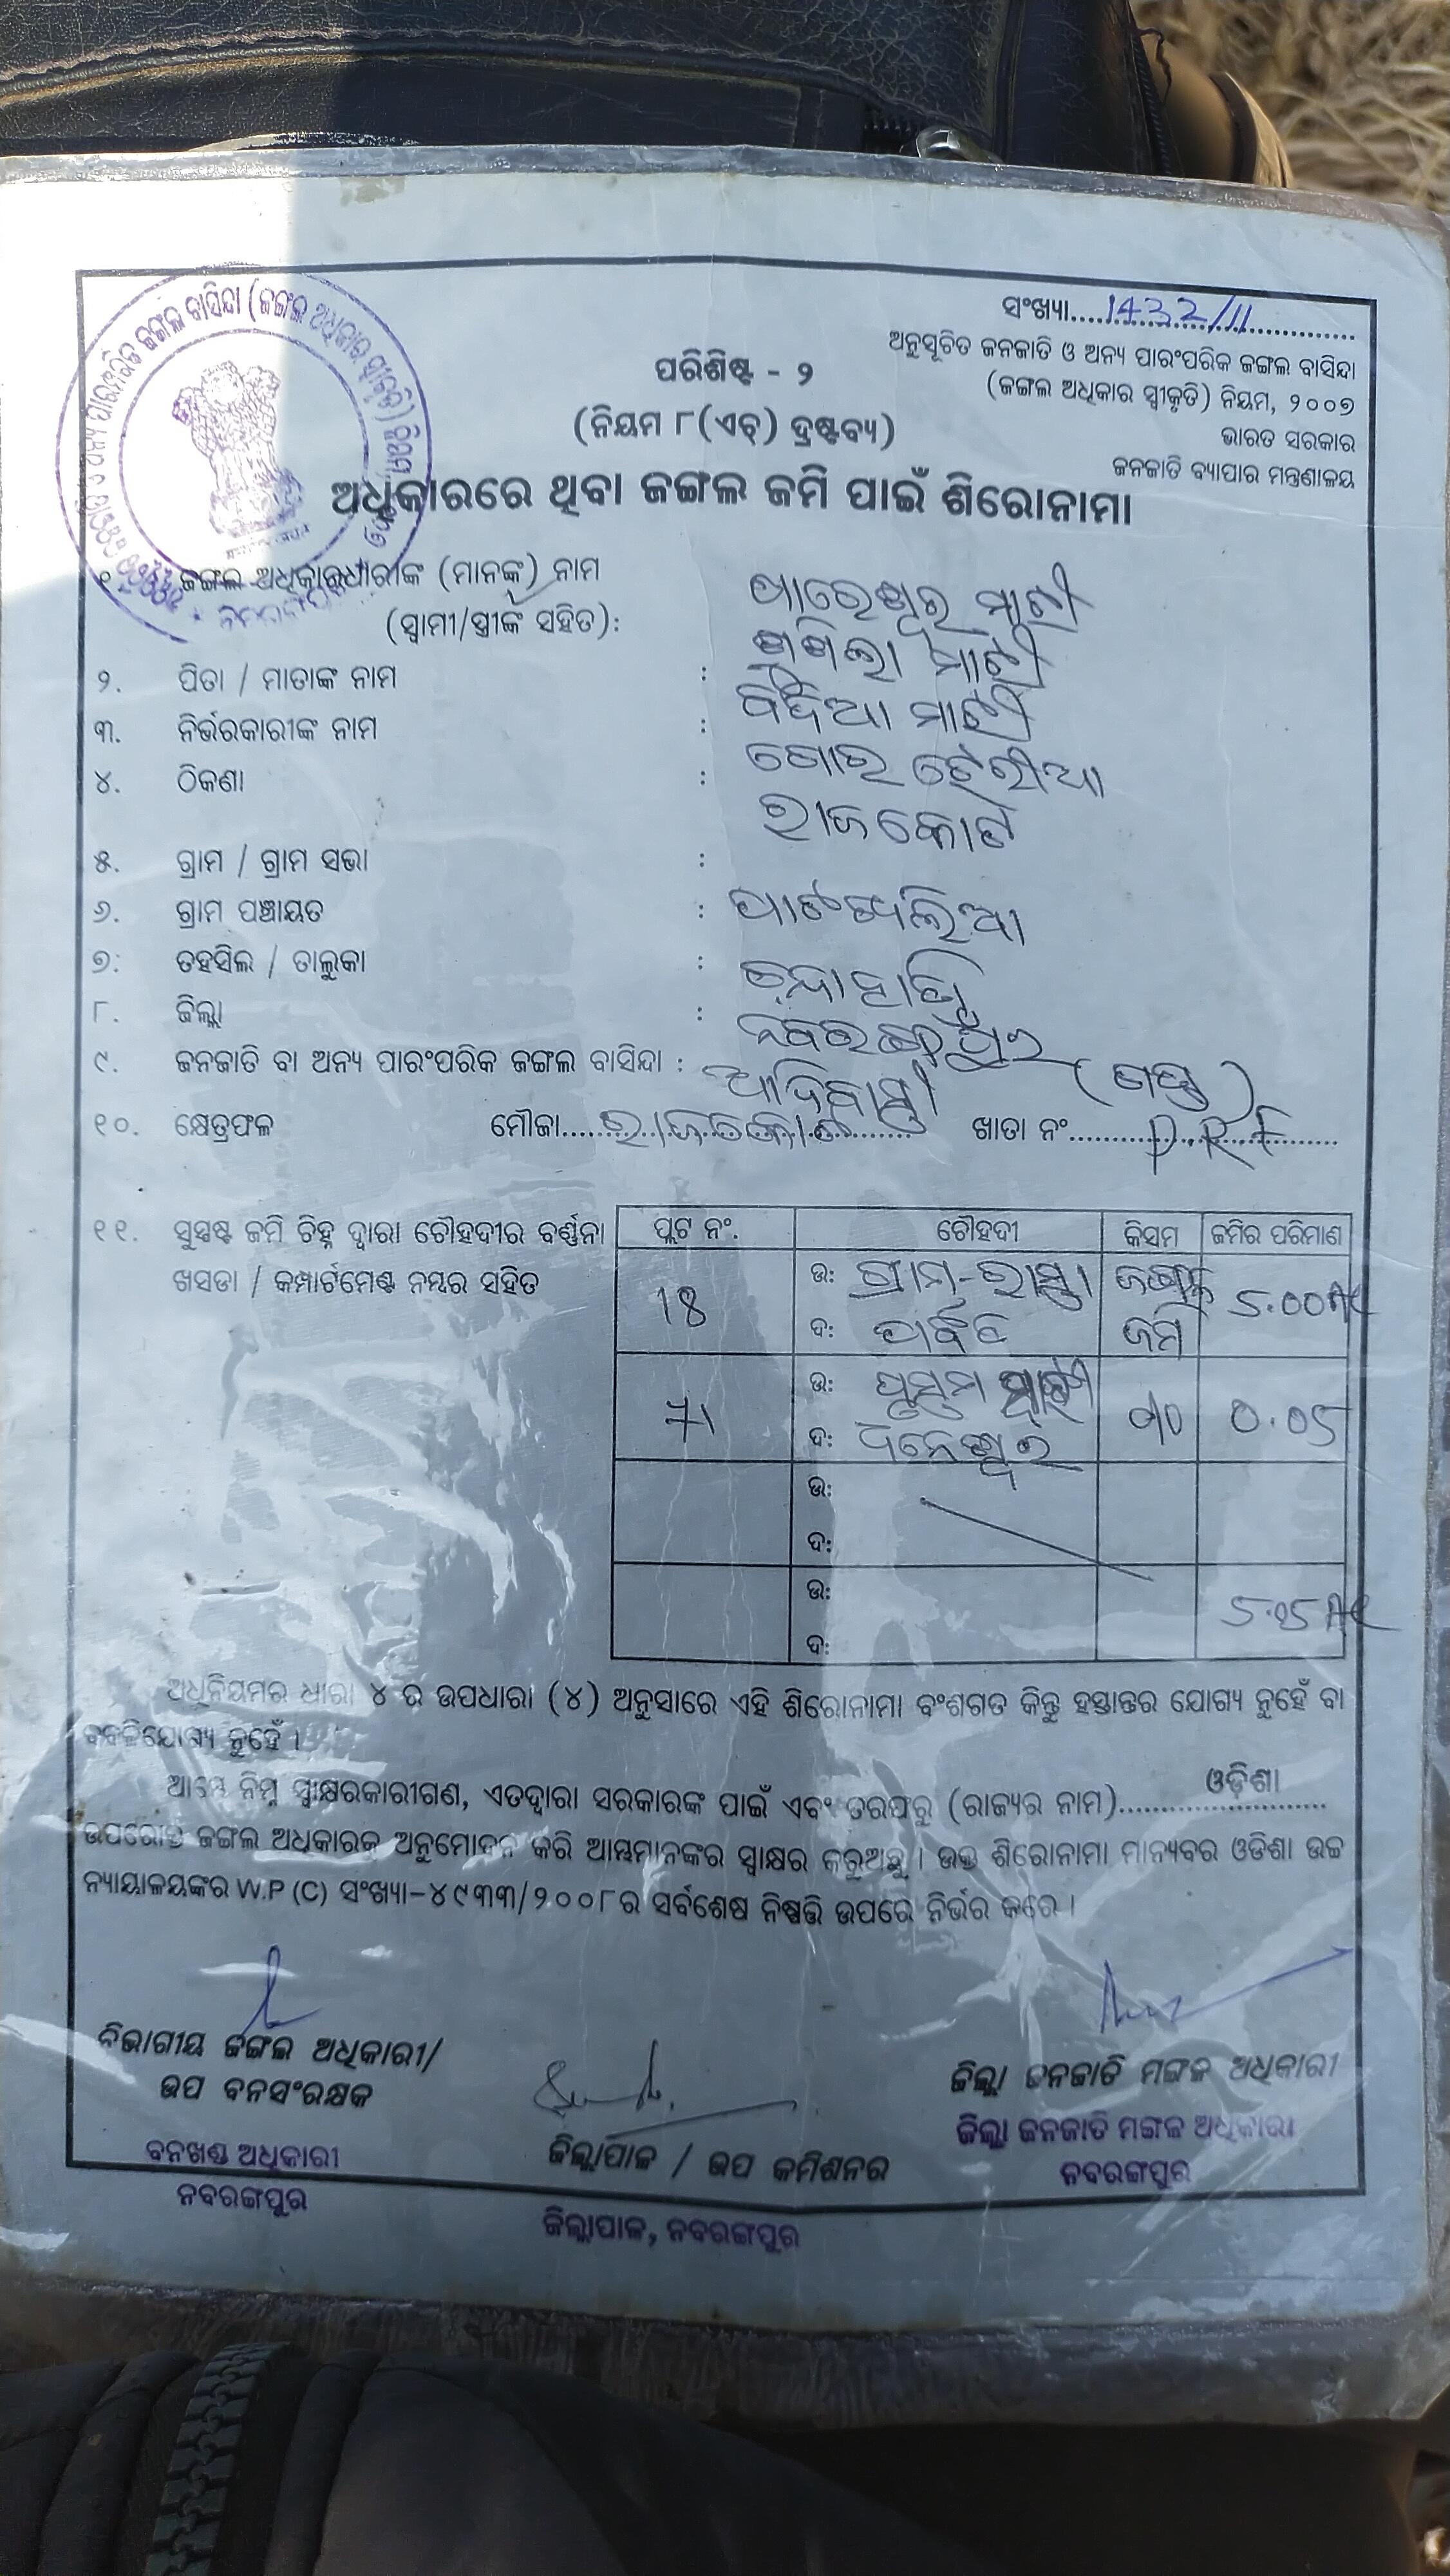 ସଂଖ୍ୟା....1432/11....
ଅନୁସୂଚିତ ଜନଜାତି ଓ ଅନ୍ୟ ପାରଂପରିକ ଜଙ୍ଗଲ ବାସିନ୍ଦା
(ଜଙ୍ଗଲ ଅଧିକାର ସ୍ୱୀକୃତି) ନିୟମ, ୨୦୦୭
ଭାରତ ସରକାର
ଜନଜାତି ବ୍ୟାପାର ମନ୍ତ୍ରଣାଳୟ
ପରିଶିଷ୍ଟ - ୨
(ନିୟମ ୮(ଏଚ୍) ଦ୍ରଷ୍ଟବ୍ୟ)
ଅଧିକାରରେ ଥିବା ଜଙ୍ଗଲ ଜମି ପାଇଁ ଶିରୋନାମା
୧. ଜଙ୍ଗଲ ଅଧିକାରଧାରୀଙ୍କ (ମାନଙ୍କ) ନାମ
(ସ୍ୱାମୀ/ସ୍ତ୍ରୀଙ୍କ ସହିତ):
୨. ପିତା / ମାତାଙ୍କ ନାମ :
୩. ନିର୍ଭରକାରୀଙ୍କ ନାମ :
୪. ଠିକଣା : ରାଜକୋଟ
୫. ଗ୍ରାମ / ଗ୍ରାମ ସଭା :
୬. ଗ୍ରାମ ପଞ୍ଚାୟତ :
୭: ତହସିଲ / ତାଲୁକା :
୮. ଜିଲ୍ଲା : ନବରଙ୍ଗପୁର
୯. ଜନଜାତି ବା ଅନ୍ୟ ପାରଂପରିକ ଜଙ୍ଗଲ ବାସିନ୍ଦା : ଆଦିବାସୀ (ଗଣ୍ଡ)
୧୦. କ୍ଷେତ୍ରଫଳ ମୌଜା....ରାଜକୋଟ.... ଖାତା ନଂ....D.R.F....
୧୧. ସୁସ୍ପଷ୍ଟ ଜମି ଚିହ୍ନ ଦ୍ୱାରା ଚୌହଦୀର ବର୍ଣ୍ଣନା
ଖସଡା / କମ୍ପାର୍ଟମେଣ୍ଟ ନମ୍ବର ସହିତ
ପ୍ଲଟ ନଂ. ଚୌହଦୀ କିସମ ଜମିର ପରିମାଣ
18 ଉ: ଗ୍ରାମ-ରାସ୍ତା ଜଙ୍ଗଲ 5.00Ac
ଦ: ଜମି
71 ଉ: 0.05
ଦ: ଧନେଶ୍ୱର
ଉ:
ଦ:
ଉ: 5.05 Ac
ଦ:
ଅଧିନିୟମର ଧାରା ୪ ର ଉପଧାରା (୪) ଅନୁସାରେ ଏହି ଶିରୋନାମା ବଂଶଗତ କିନ୍ତୁ ହସ୍ତାନ୍ତର ଯୋଗ୍ୟ ନୁହେଁ ବା
ବଦଳିଯୋଗ୍ୟ ନୁହେଁ ।
ଆମ୍ଭେ ନିମ୍ନ ସ୍ୱାକ୍ଷରକାରୀଗଣ, ଏତଦ୍ଦ୍ୱାରା ସରକାରଙ୍କ ପାଇଁ ଏବଂ ତରଫରୁ (ରାଜ୍ୟର ନାମ)....ଓଡ଼ିଶା....
ଉପରୋକ୍ତ ଜଙ୍ଗଲ ଅଧିକାରକୁ ଅନୁମୋଦନ କରି ଆମ୍ଭମାନଙ୍କର ସ୍ୱାକ୍ଷର କରୁଅଛୁ । ଉକ୍ତ ଶିରୋନାମା ମାନ୍ୟବର ଓଡିଶା ଉଚ୍ଚ
ନ୍ୟାୟାଳୟଙ୍କର W.P (C) ସଂଖ୍ୟା-୪୯୩୩/୨୦୦୮ର ସର୍ବଶେଷ ନିଷ୍ପତ୍ତି ଉପରେ ନିର୍ଭର କରେ ।
ବିଭାଗୀୟ ଜଙ୍ଗଲ ଅଧିକାରୀ/
ଉପ ବନସଂରକ୍ଷକ
ବନଖଣ୍ଡ ଅଧିକାରୀ
ନବରଙ୍ଗପୁର
ଜିଲ୍ଲାପାଳ / ଉପ କମିଶନର
ଜିଲ୍ଲାପାଳ, ନବରଙ୍ଗପୁର
ଜିଲ୍ଲା ଜନଜାତି ମଙ୍ଗଳ ଅଧିକାରୀ
ଜିଲ୍ଲା ଜନଜାତି ମଙ୍ଗଳ ଅଧିକାରୀ
ନବରଙ୍ଗପୁର